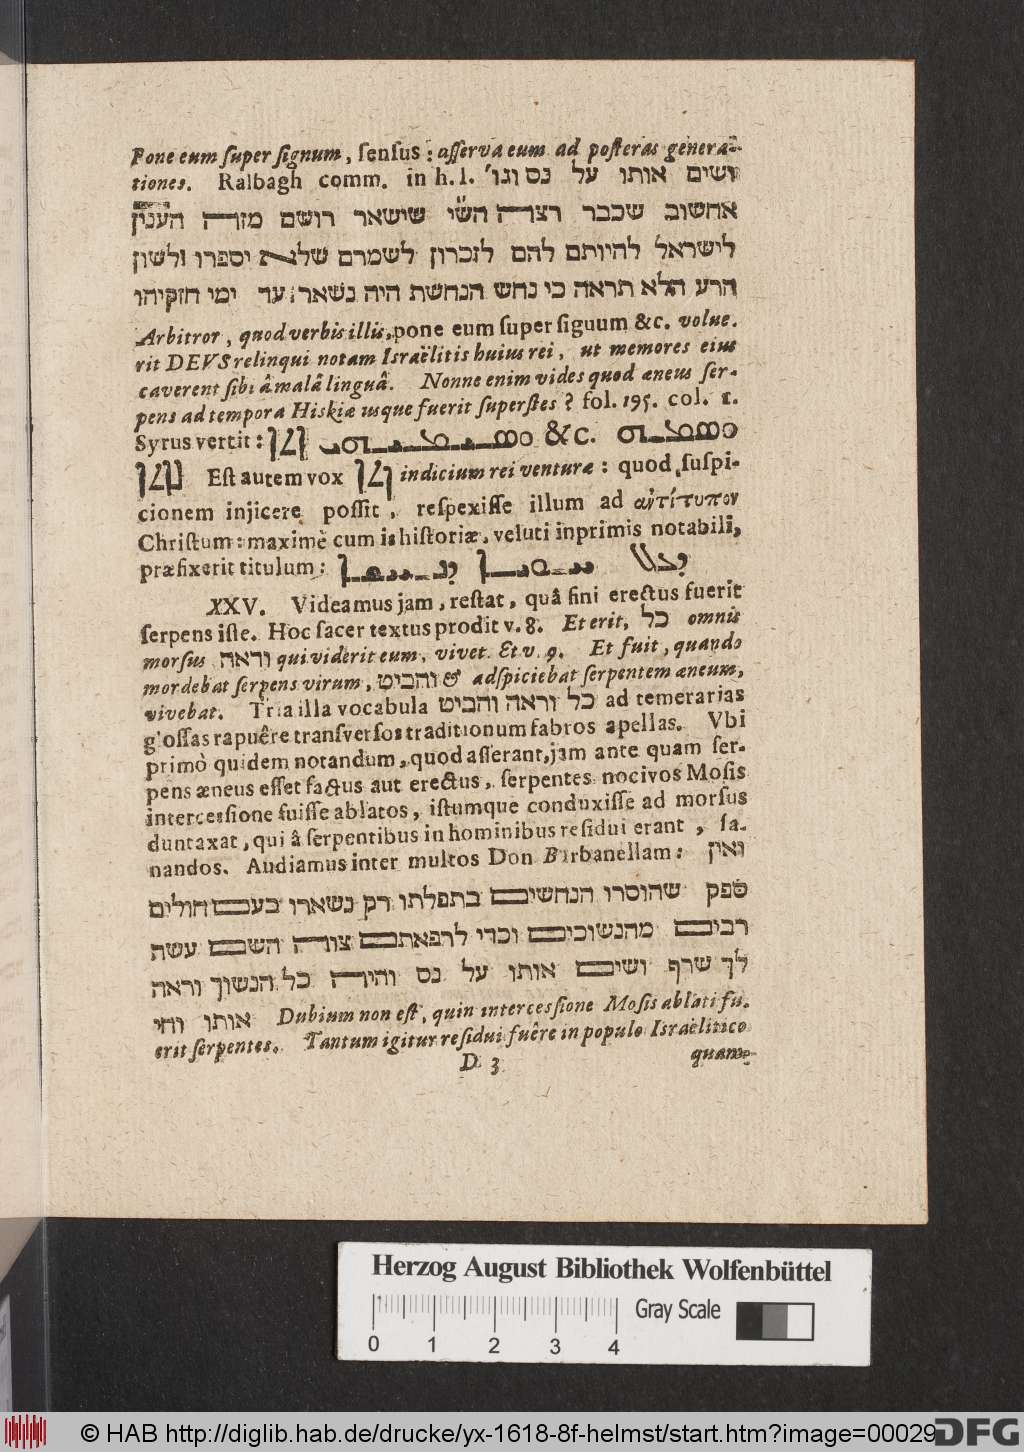 Pone eum ſuper ſignum, ſenſus: aſſerva eum ad poſteras genera-
tiones. Ralbagh comm. in h. l. ושים אותו על נס וגו׳
אחשוב שכבר רצה השי״ שישאר רושם מזה הענין
לישראל להיותם להם לזכרון לשמרם שלא יספרו ולשון
הרע הלא תראה כי נחש הנחשת היה נשאר עד ימי חזקיהו
Arbitror, quod verbis illis, pone eum ſuper ſiguum &c. volue.
rit DEUS relinqui notam Israëlitis huius rei, ut memores eius
caverent ſibi â malâ linguâ. Nonne enim vides quod æneus ſer-
pens ad tempora Hiskiæ usque fuerit ſuperſtes? fol. 195. col. 1.
Syrus vertit: &c.
Eſt autem vox indicium rei venturæ: quod ſuſpi-
cionem injicere poſſit, reſpexiſſe illum ad ἀντίτυπον
Chriſtum: maximè cum is hiſtoriæ, veluti inprimis notabili,
præfixerit titulum:
XXV. Videamus jam, reſtat, quâ fini erectus fuerit
ſerpens iſte. Hoc ſacer textus prodit v. 8. Et erit, כל omnis
morſus וראה qui viderit eum, vivet. Et v. 9. Et fuit, quando
mordebat ſerpens virum, והביט & adſpiciebat ſerpentem æneum,
vivebat. Tria illa vocabula כל וראה והביט ad temerarias
gloſſas rapuêre tranſverſos traditionum fabros apellas. Vbi
primò quidem notandum, quod aſſerant, jam ante quam ſer-
pens æneus eſſet factus aut erectus, ſerpentes nocivos Moſis
interceſſione fuiſſe ablatos, iſtumque conduxiſſe ad morſus
duntaxat, qui â ſerpentibus in hominibus reſidui erant, ſa-
nandos. Audiamus inter multos Don Barbanellam: ואין
ספק שהוסרו הנחשים בתפלתו רק נשארו בעם חולים
רבים מהנשוכים וכדי לרפאתם צוה השם עשה
לך שרף ושים אותו על נס והיה כל הנשוך וראה
אותו וחי Dubium non eſt, quin interceſſione Moſis ablati fu-
erit ſerpentes. Tantum igitur reſidui fuêre in populo Israëlitico
D 3 quam-
Herzog August Bibliothek Wolfenbüttel
Gray Scale
0 1 2 3 4
© HAB http://diglib.hab.de/drucke/yx-1618-8f-helmst/start.htm?image=00029
DFG